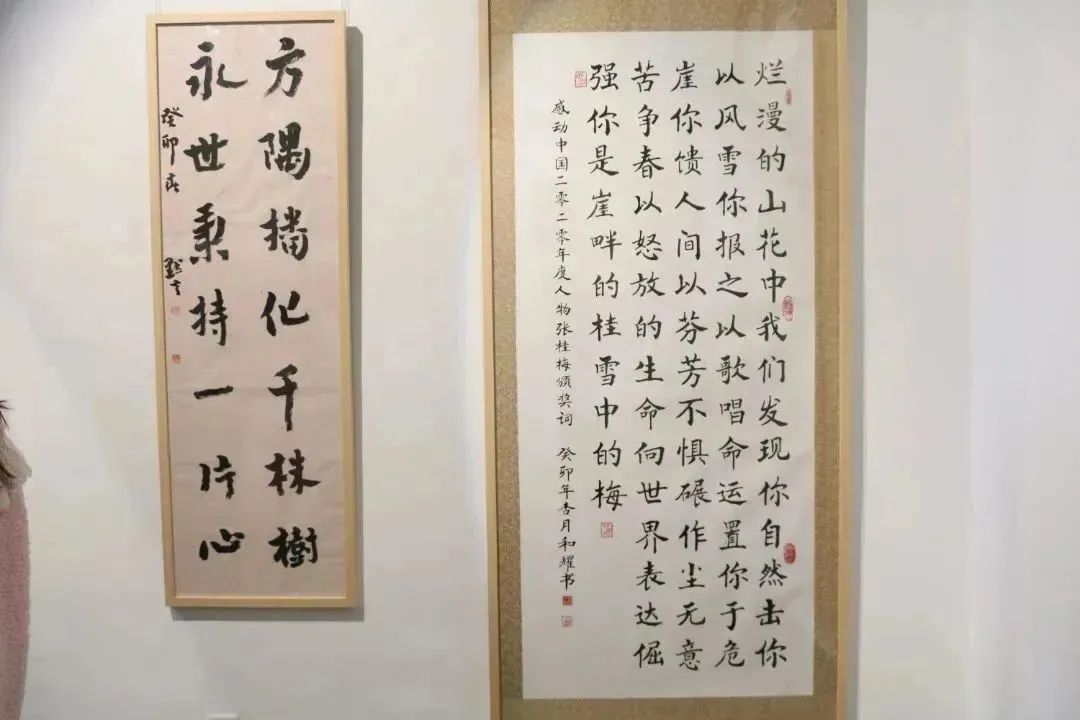 方隅播化千株樹
永世秉持一片心
癸卯春
烂漫的山花中我们发现你自然击你
以风雪你报之以歌唱命运置你于危
崖你馈人间以芬芳不惧碾作尘无意
苦争春以怒放的生命向世界表达倔
强你是崖畔的桂雪中的梅
感动中国二零二零年度人物张桂梅颁奖词 癸卯年杏月和耀书